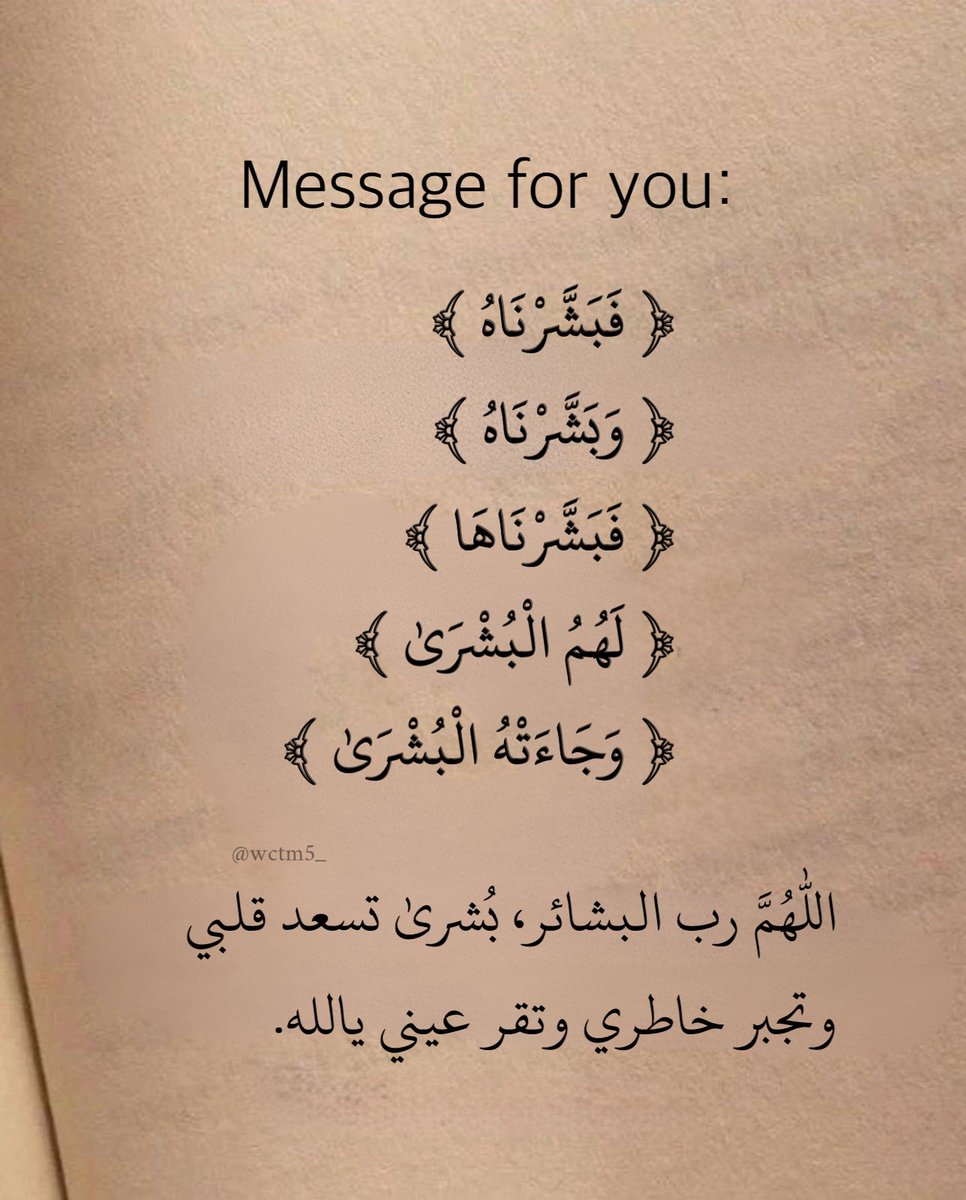 Message for you:
﴿ فَبَشَّرْنَاهُ ﴾
﴿ وَبَشَّرْنَاهُ ﴾
﴿ فَبَشَّرْنَاهَا ﴾
﴿ لَهُمُ الْبُشْرَىٰ ﴾
﴿ وَجَاءَتْهُ الْبُشْرَىٰ ﴾
@wctm5_
اللّٰهُمَّ رب البشائر، بُشرىٰ تسعد قلبي
وتجبر خاطري وتقر عيني يالله.